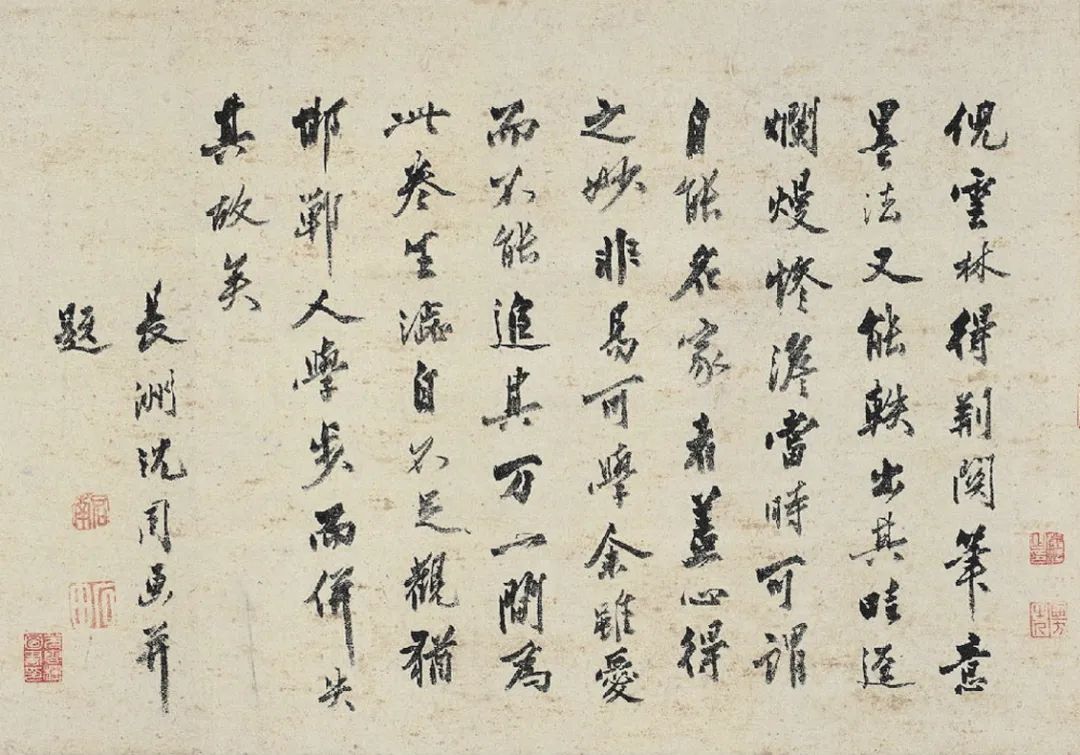 倪雲林得荆関筆意
墨法又能軼出其畦逕
爛熳慘澹當時可謂
自能名家者蓋心得
之妙非易可學余雖愛
而不能追其万一間為
此卷生澁自不足觀猶
邯鄲人學步而併失
其故矣
長洲沈周畫并
題